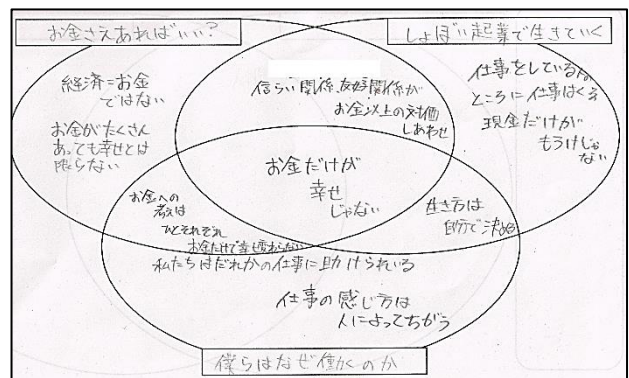 お金さえあればいい？
しょぼい起業で生きていく
経済=お金
ではない
お金がたくさん
あっても幸せとは
限らない
信らい関係、友好関係が
お金以上の対価
しあわせ
仕事をしている人の
ところに仕事はくる
現金だけが
もうけじゃ
ない
お金だけが
幸せ
じゃない
お金への
考えは
ひとそれぞれ
お金だけで幸せ変わらない
生き方は
自分で決める
私たちはだれかの仕事に助けられている
仕事の感じ方は
人によってちがう
僕らはなぜ働くのか